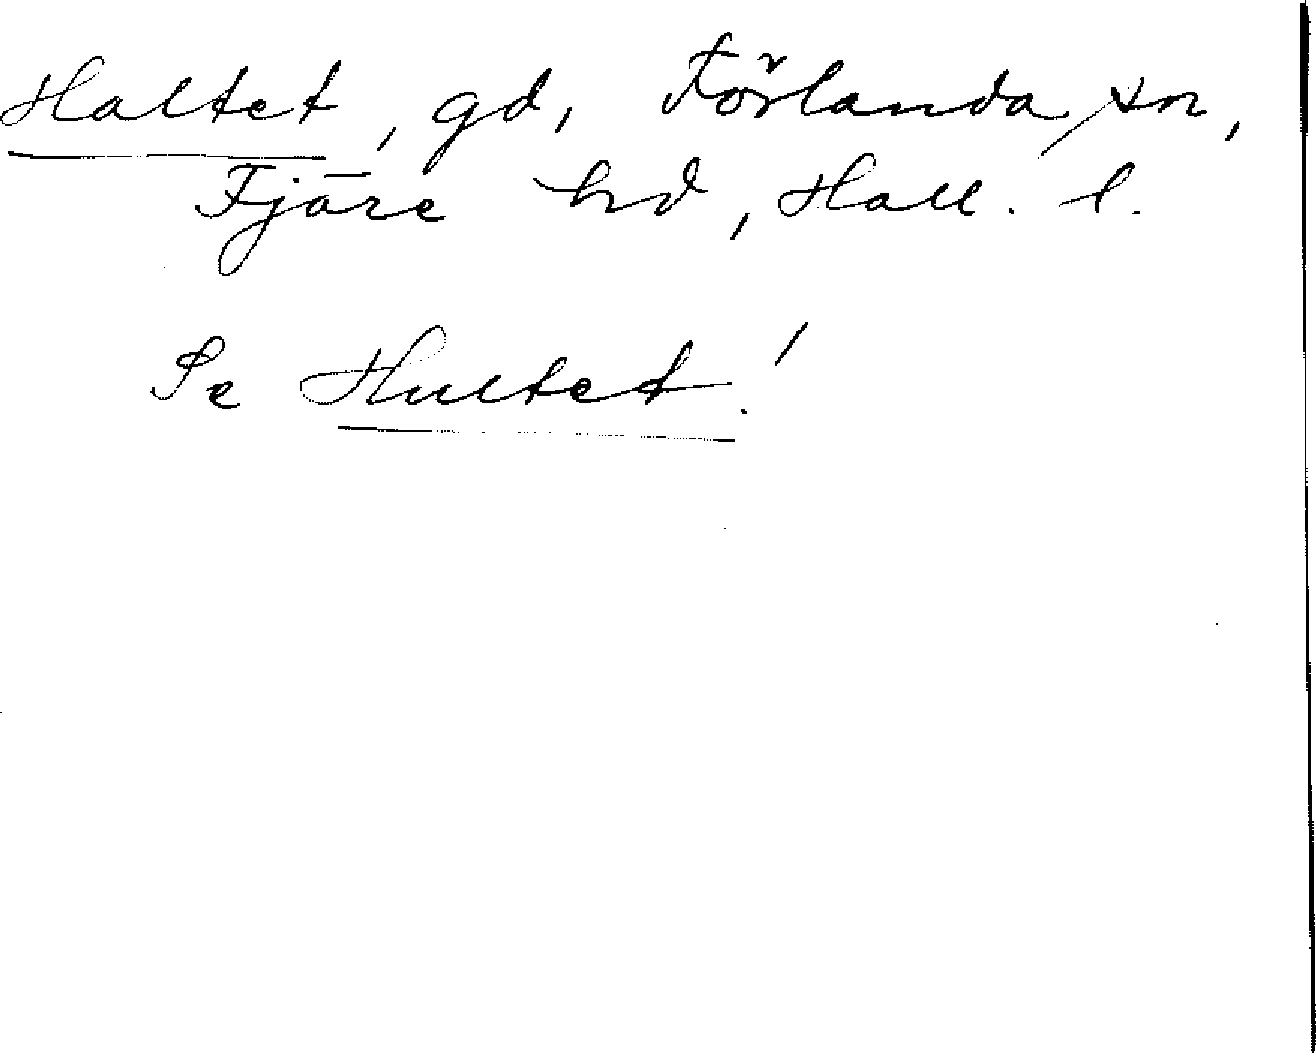 Haltet, gd, Förlanda sn,
Fjäre hd, Hall. l.
Se Hultet!